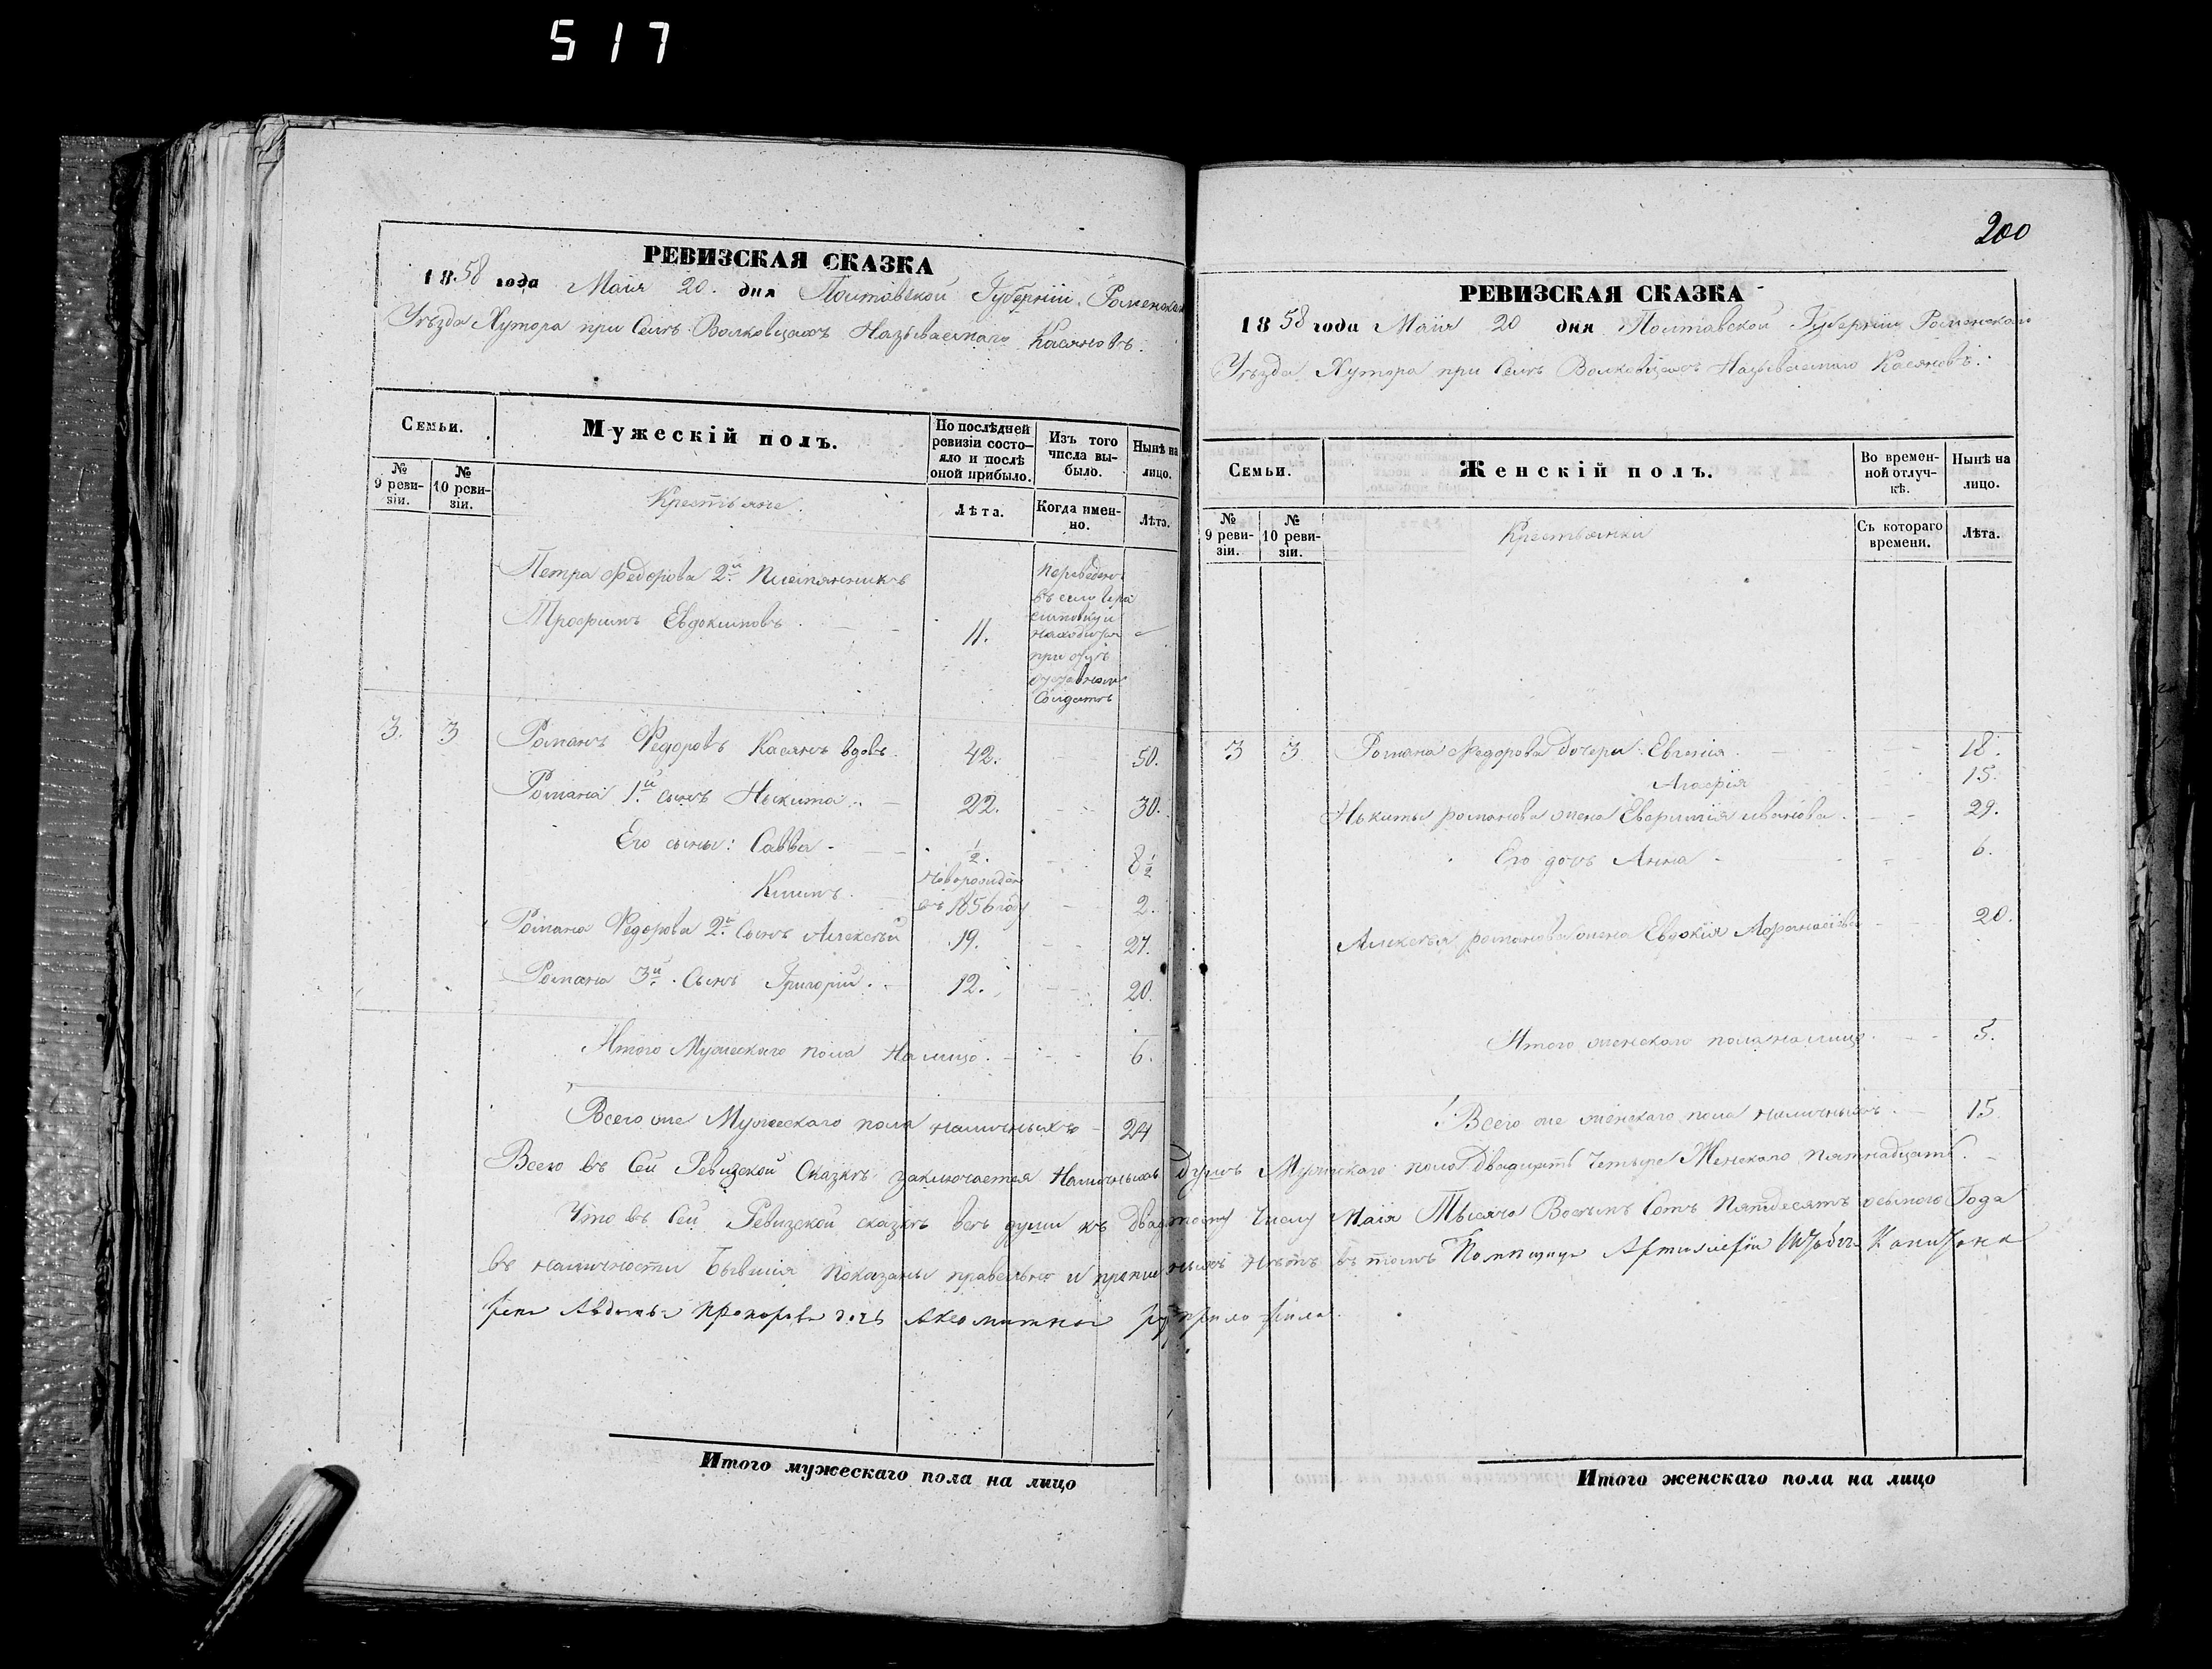 517
РЕВИЗСКАЯ СКАЗКА
1858 года Маия 20. дня Полтавской Губернии. Роменскаго
Уѣзда Хутора при Селѣ Волковцахъ Называемаго Касяновъ.
Семьи.
№ 9 реви-зіи.
№ 10 реви-зіи.
Мужескій полъ.
По послѣдней ревизіи состо-яло и послѣ оной прибыло.
Изъ того числа вы-было.
Нынѣ на лицо.
Крестьяне.
Лѣта.
Когда имен-но.
Лѣта.
Петра Федорова 2й Племянникъ
Трофимъ Евдокимовъ 11.
Переведенъ
въ село
находится
при отцѣ
отставном
Солдатѣ
3. 3 Романъ Федоровъ Касянъ вдовъ. 42. 50.
Романа 1й сынъ Никита 22. 30.
Его сыны: Савва ½. 8½
Климъ. Новорожден въ 1856 году 2.
Романа Федорова 2й Сынъ Алексѣй 19. 27.
Романа 3й Сынъ Григорий. 12. 20.
Итого Мужескаго пола На лицо. 6.
Всего же Мужескаго пола наличныхъ 24
200
РЕВИЗСКАЯ СКАЗКА
1858 года Маия 20 дня Полтавской Губернии Роменскаго
Уѣзда Хутора при Селѣ Волковцахъ Называемаго Касяновъ.
Семьи.
№ 9 реви-зіи.
№ 10 реви-зіи.
Женскій полъ.
Во времен-ной отлуч-кѣ.
Нынѣ на лицо.
Крестьянки
Съ котораго времени.
Лѣта.
3 3 Романа Федорова дочери: Евгения. 18.
Агафія 15.
Никиты романова жена Евфимія иванова. 29.
Его дочь Анна 6.
Алексѣя романова жена Евдокия Афанасіева 20.
Итого женскаго пола на лицо. 5.
Всего же женскаго пола наличныхъ. 15
Всего въ Сей Ревизской Сказкѣ заключается Наличныхъ душъ Мужескаго пола Двадцать Четыре Женскаго Пятнадцать.
Что въ Сей Ревизской сказкѣ всѣ души къ двадцатому Числу Маія Тысяча Восемь Сотъ Пятдесятъ осьмого Года
въ наличности Бывшія Показаны правельно и прописныхъ нѣтъ въ томъ Помпщица Артилерии Штабсъ Капитана
Авдотья Прохорова дочь руку приложила
Итого мужескаго пола на лицо
Итого женскаго пола на лицо